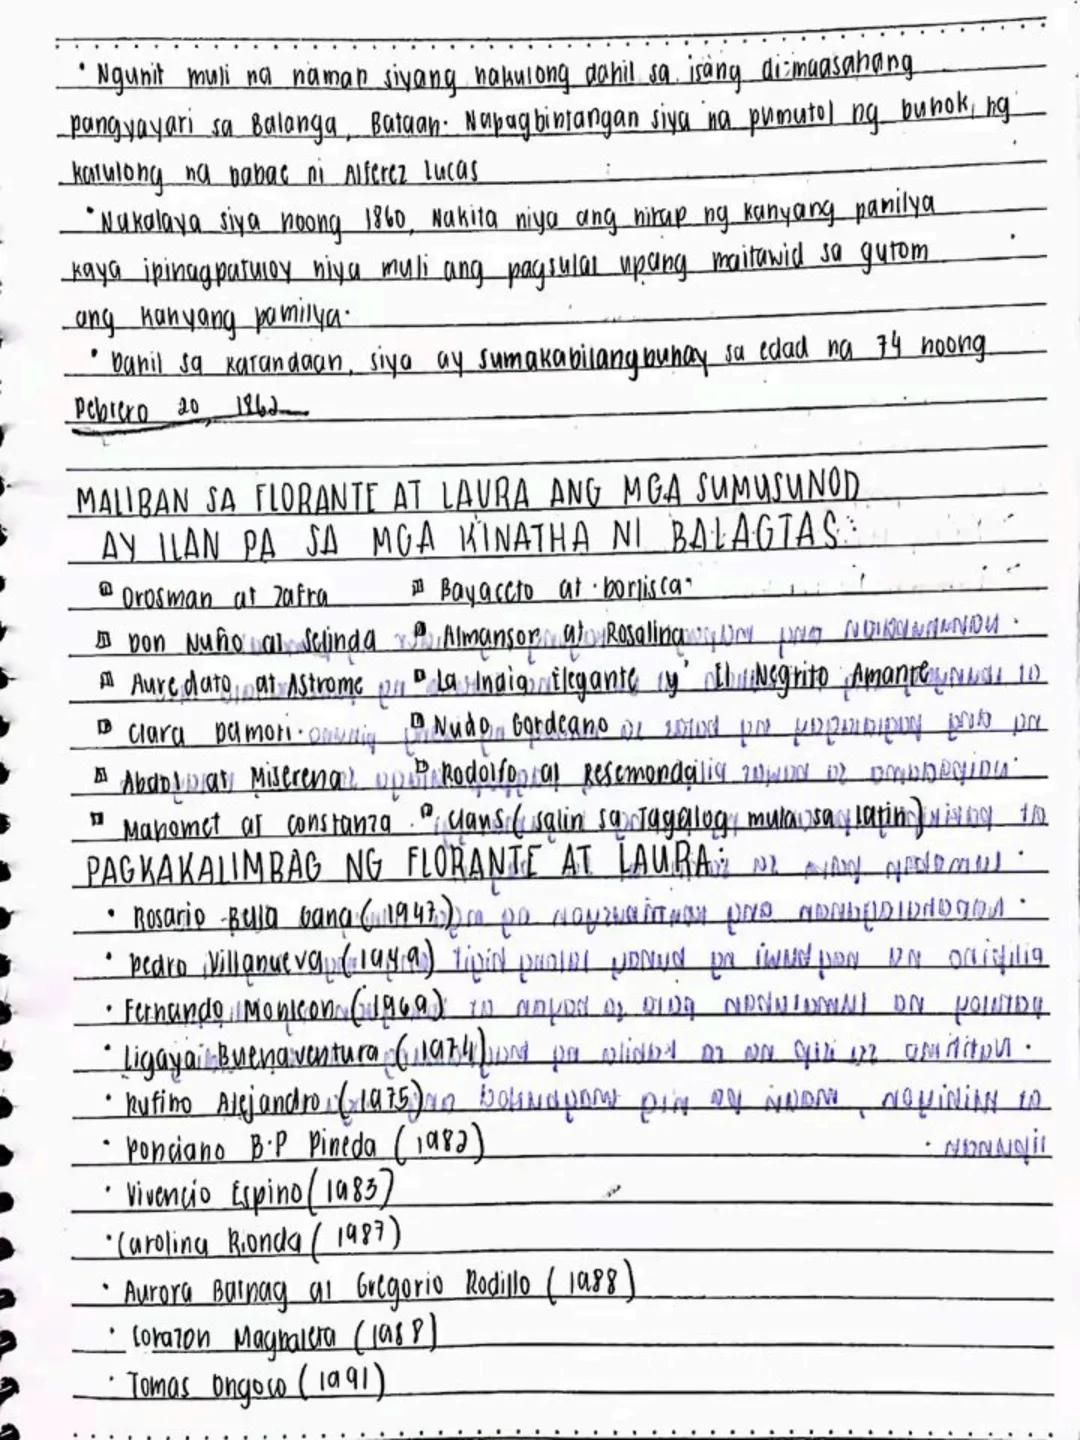 • Ngunit muli na naman siyang nakulong dahil sa isang di-maasahang
pangyayari sa Balanga, Bataan. Napagbintangan siya na pumutol ng buhok ng
katulong na babae ni Alferez Lucas
• Nakalaya siya noong 1860, Nakita niya ang hirap ng kanyang pamilya
kaya ipinagpatuloy niya muli ang pagsulat upang maitawid sa gutom
ang kanyang pamilya.
• Dahil sa katandaan, siya ay sumakabilangbuhay sa edad na 74 noong
Pebrero 20, 1862
MALIBAN SA FLORANTE AT LAURA ANG MGA SUMUSUNOD
AY ILAN PA SA MGA KINATHA NI BALAGTAS:
Orosman at Zafra Bayaceto at Dorlisca
Don Nuño at Selinda Almansor at Rosalina
Auredato at Astrome La India Elegante y' El Negrito Amante
Clara Belmori Nudo Gordeano
Abdol at Miserena Rodolfo at Resemonda
Mahomet at Constanza Claus (salin sa Tagalog mula sa Latin)
PAGKAKALIMBAG NG FLORANTE AT LAURA:
• Rosario Bella Gana (1947)
• Pedro Villanueva (1949)
• Fernando Monleon (1969)
• Ligaya Buenaventura (1974)
• Rufino Alejandro (1975)
• Ponciano B.P Pineda (1982)
• Vivencio Espino (1983)
• Carolina Rionda (1987)
• Aurora Batnag at Gregorio Rodillo (1988)
• Corazon Magbaleta (1988)
• Tomas Ongoco (1991)